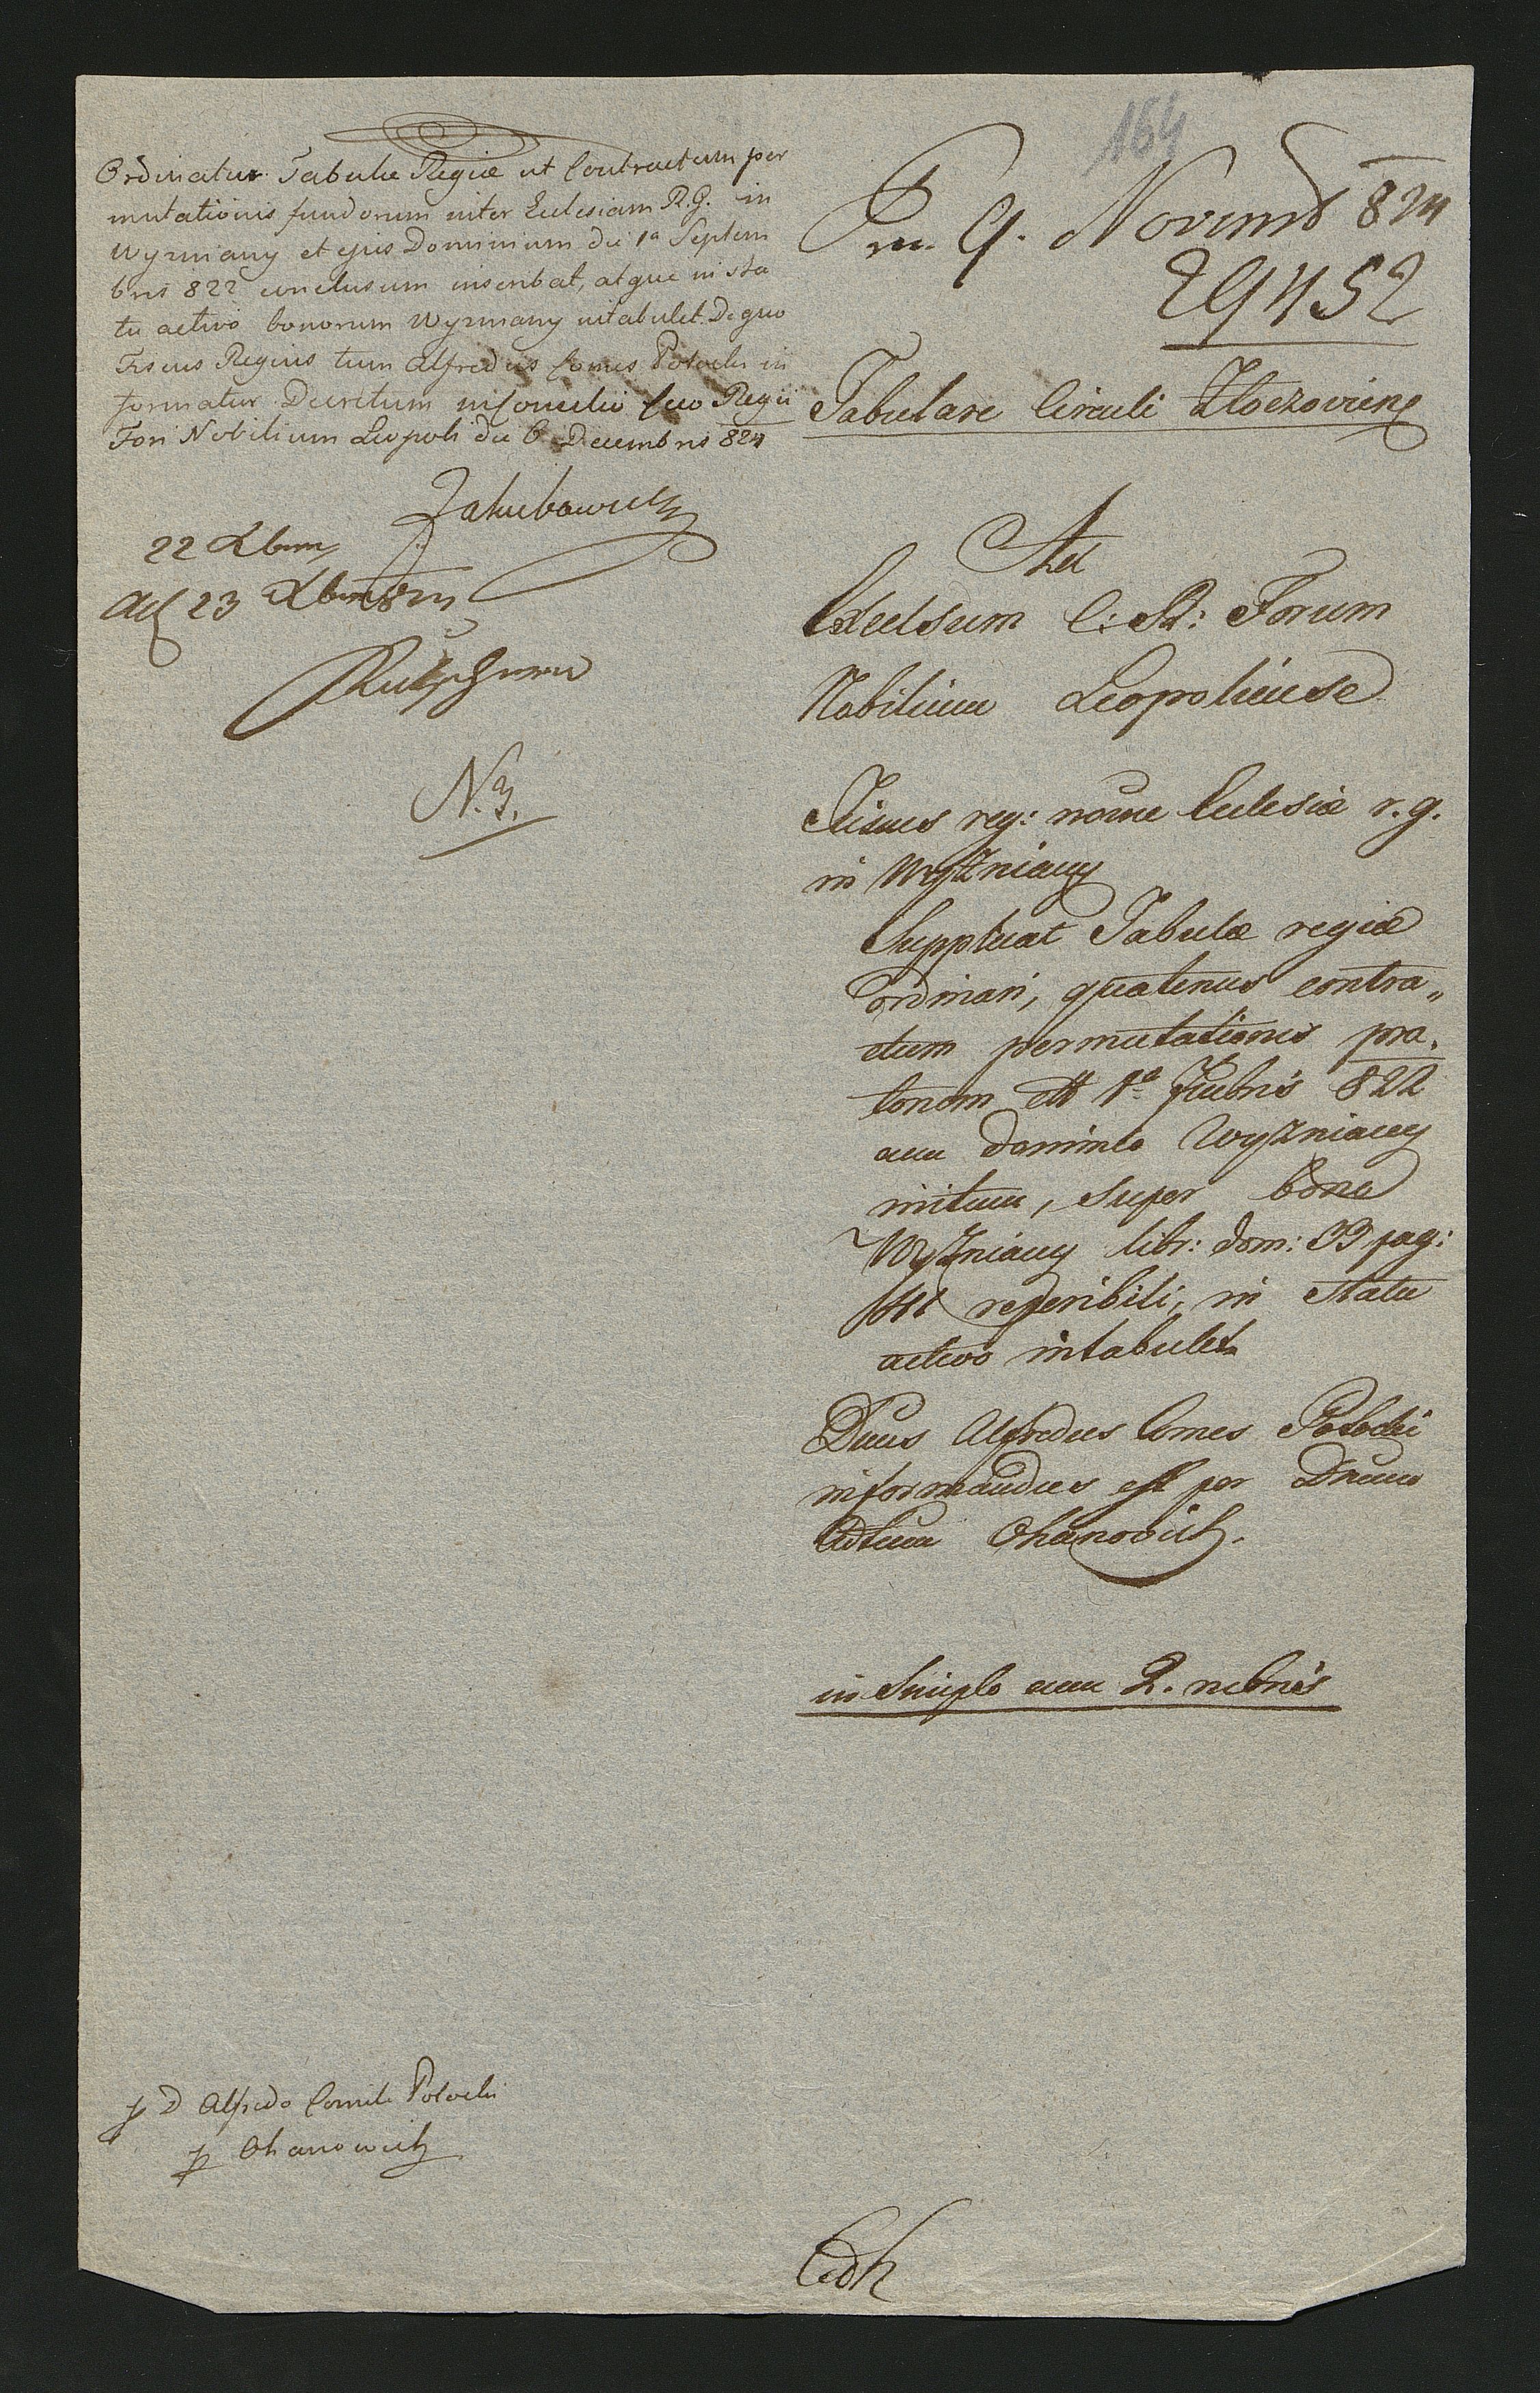 164
Ordinatur Tabulæ Regiæ ut Contractum per
mutationis fundorum inter Ecclesiam R.G. in
Wyzniany et ejus Dominium die 1a Septem
bris 822 conclusum inscribat, atque in sta
tu activo bonorum Wyzniany intabulet. De quo
Fiscus Regius tum Alfredus Comes Potocki in
formatur Decretum in Consilio Cæo Regii
Fori Nobilium Leopoli die 6 Decembris 824
Jakubowicz
22 Xbris
23 Xbris 824
N. 3.
p D Alfredo Comiti Potocki
p Ohanowicz
9. Novemb 824
29452
Tabulare Circuli Zloczoviens
Ad
Excelsum C: R: Forum
Nobilium Leopoliense
Fiscus reg: nomine Ecclesiæ r. g.
in Wyzniany
Supplicat Tabulæ regiæ
ordinari, quatenus contra„
ctum permutationis pra„
torum dtt 1a 7bris 822
cum dominio Wyzniany
initum, super bona
Wyzniany libr: dom: 39 pag:
reperibili, in statu
activo intabulet
Dnus Alfredus Comes Potocki
informandus est per Dnum
Adtum Ohanovicz.
in Simplo cum 2. rubris